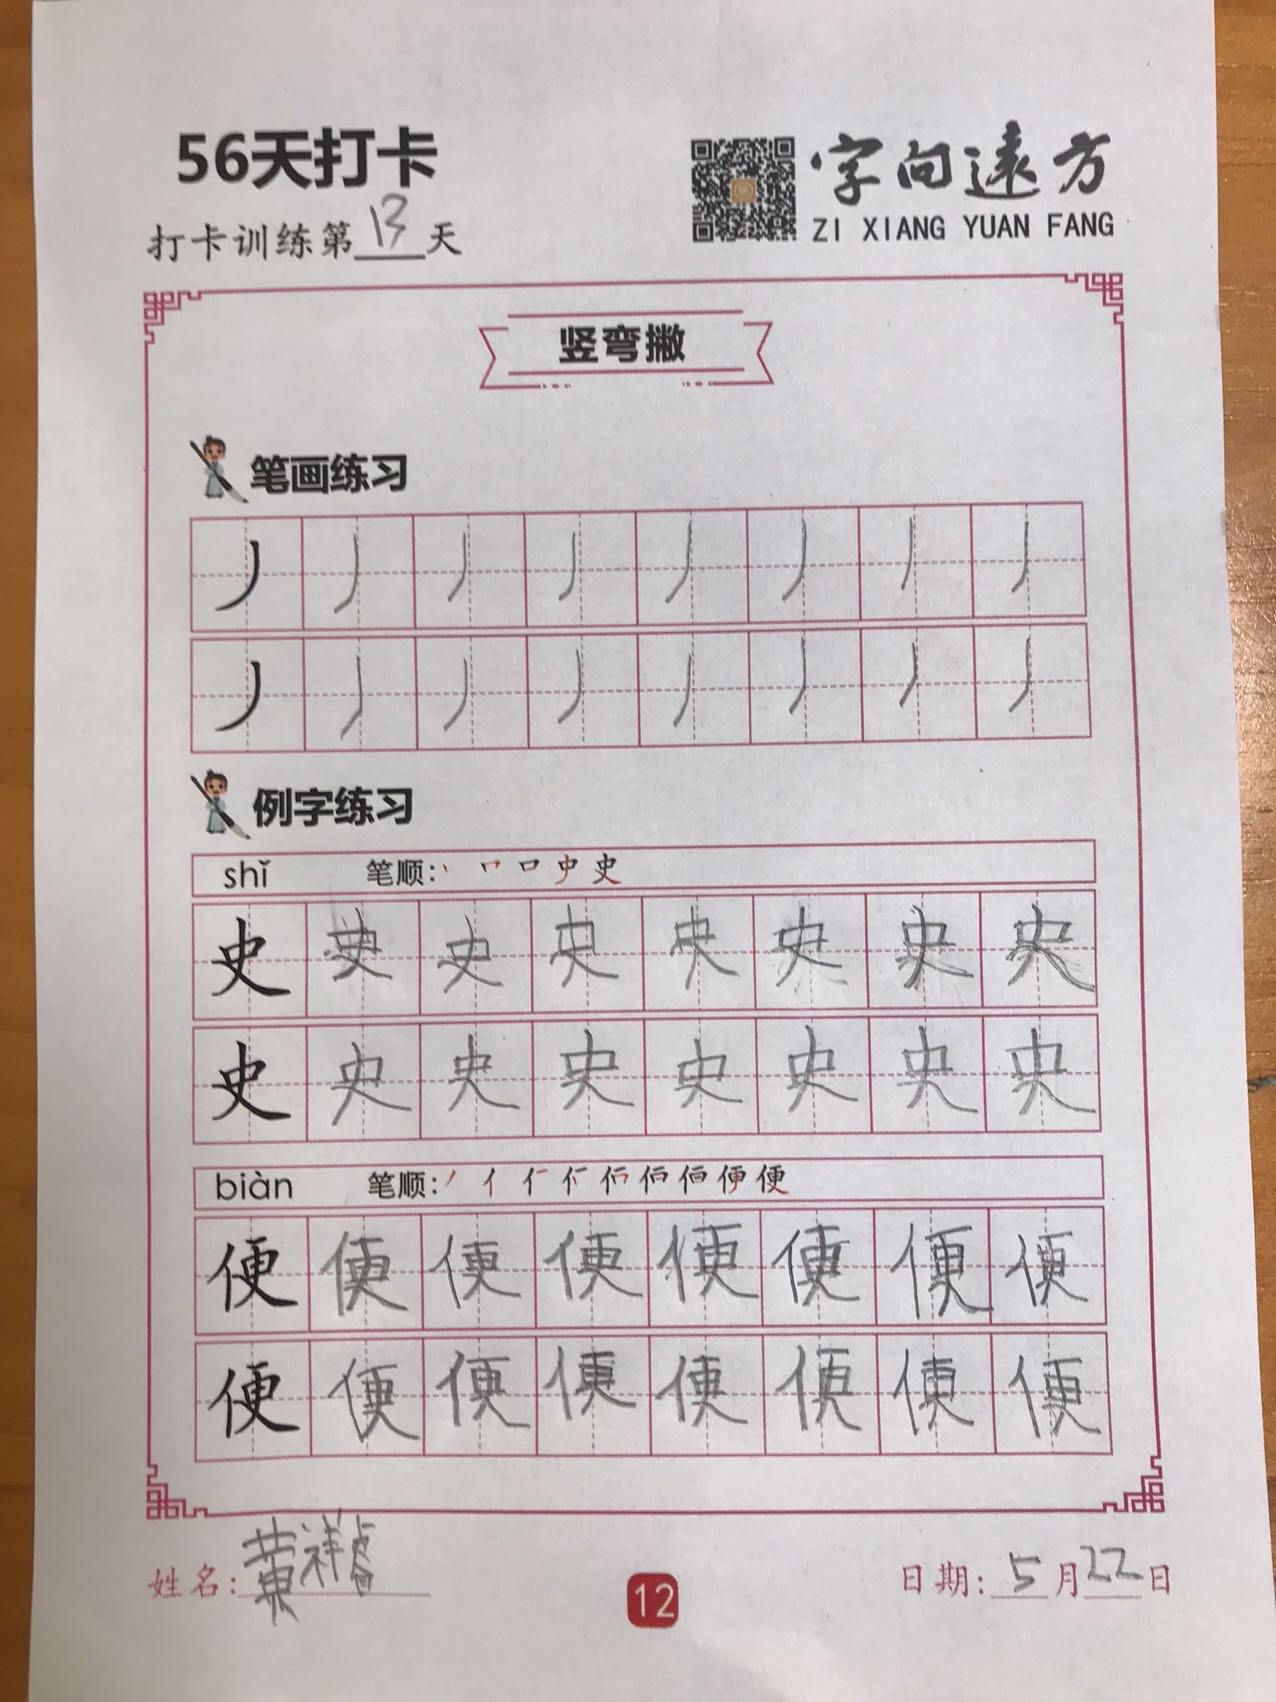 56天打卡
字向遠方
ZI XIANG YUAN FANG
打卡训练第13天
竖弯撇
笔画练习
丿丿丿丿丿丿丿丿
丿丿丿丿丿丿丿丿
例字练习
shǐ 笔顺: 丨 𠃍 口 史 史
史史史史史史史史
史史史史史史史史
biàn 笔顺: 便
便便便便便便便便
便便便便便便便便
姓名: 黄祥睿
12
日期: 5月22日